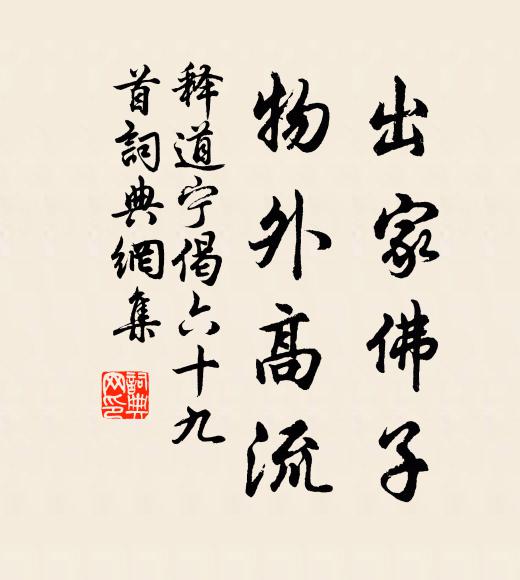 出家佛子
物外高流
释道宁偈六十九
首詞典網集
詞典网印